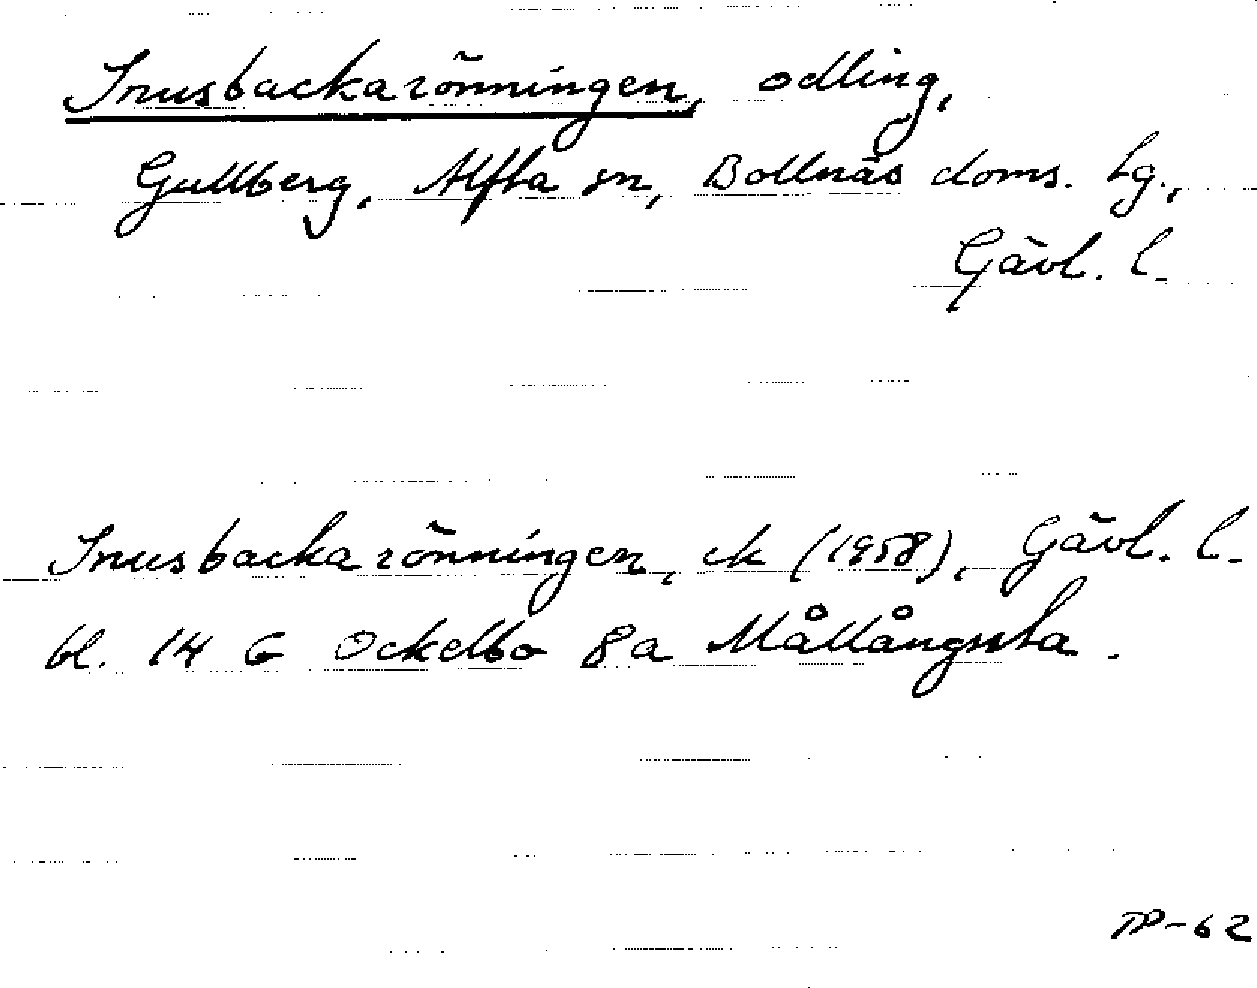 Snusbackarönningen, odling,
Gullberg, Alfta sn, Bollnäs doms. hg.,
Gävl. l.
Snusbackarönningen, ek (1958), Gävl. l.
bl. 14 G Ockelbo 8a Mållångsta.
TP-62